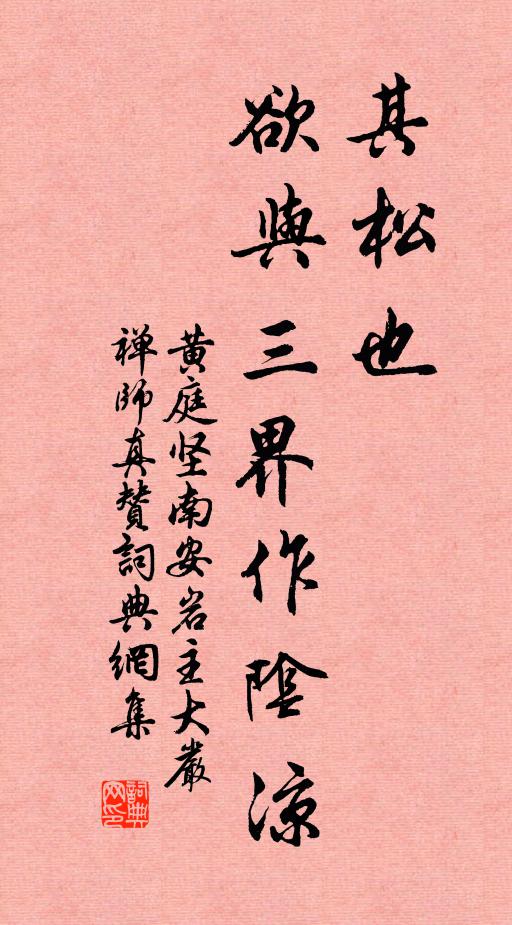 其松也
欲與三界作陰涼
黄庭坚南安岩主大嚴
禅師真賛詞典網集
詞典网印